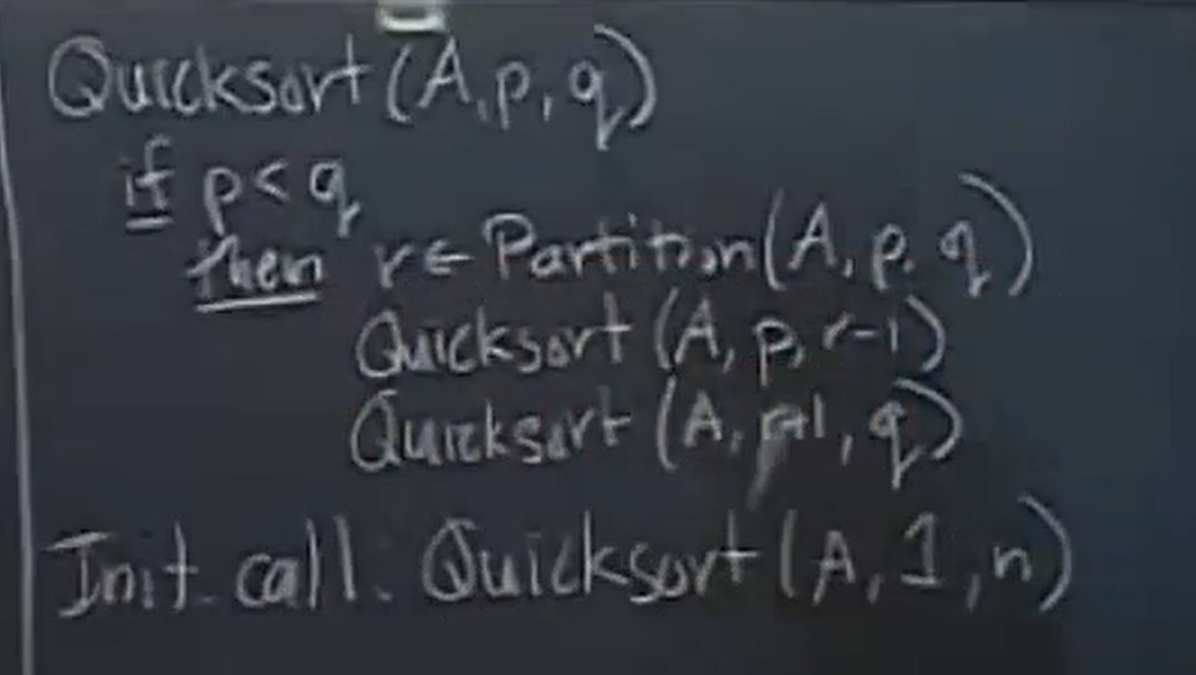 Quicksort (A, p, q)
if p < q
then r ← Partition (A, p, q)
Quicksort (A, p, r-1)
Quicksort (A, +1, q)
Init. call: Quicksort (A, 1, n)